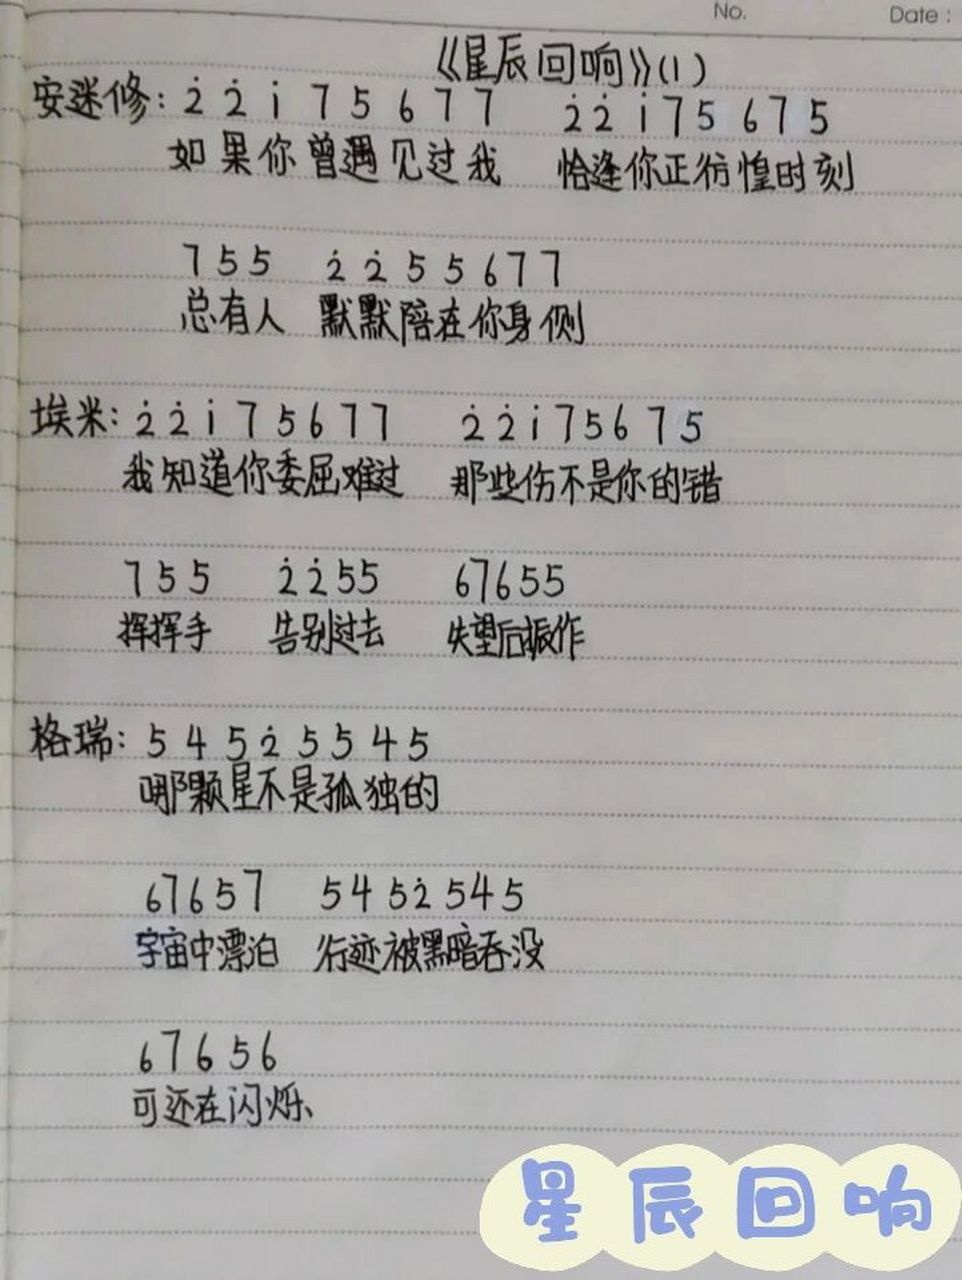 No. Date:
《星辰回响》(1)
安迷修: 2̇ 2̇ 1̇ 7 5 6 7 7 2̇ 2̇ 1̇ 7 5 6 7 5
如果你曾遇见过我 恰逢你正彷惶时刻
7 5 5 2̇ 2̇ 5 5 6 7 7
总有人 默默陪在你身侧
埃米: 2̇ 2̇ 1̇ 7 5 6 7 7 2̇ 2̇ 1̇ 7 5 6 7 5
我知道你委屈难过 那些伤不是你的错
7 5 5 2̇ 2̇ 5 5 6 7 6 5 5
挥挥手 告别过去 失望后振作
格瑞: 5 4 5 2̇ 5 5 4 5
哪颗星不是孤独的
6 7 6 5 7 5 4 5 2̇ 5 4 5
宇宙中漂泊 行迹被黑暗吞没
6 7 6 5 6
可还在闪烁
星辰回响